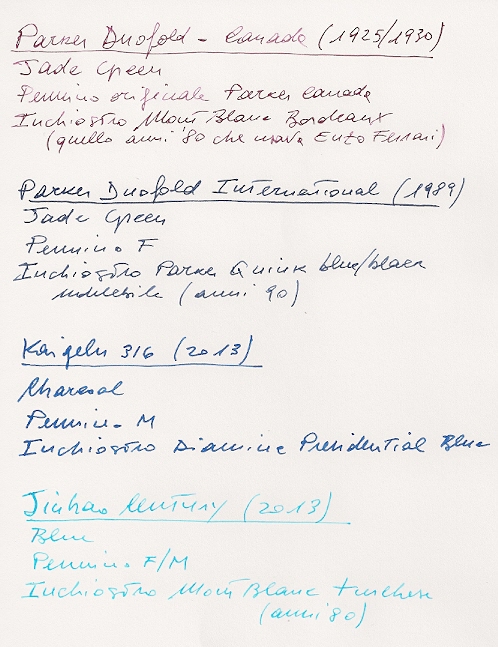 Parker Duofold - Canada (1925/1930)
Jade Green
Pennino originale Parker Canada
Inchiostro Mont Blanc Bordeaux
(quello anni '80 che usava Enzo Ferrari)
Parker Duofold International (1989)
Jade Green
Pennino F
Inchiostro Parker Quink blue/black
indelebile (anni 90)
Kaigelu 316 (2013)
Charcoal
Pennino M
Inchiostro Diamine Presidential Blue
Jinhao Century (2013)
Blue
Pennino F/M
Inchiostro Mont Blanc turchese
(anni '80)